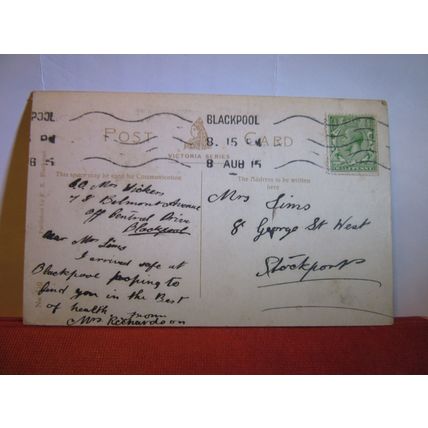 POOL
PM
8
BLACKPOOL
8.15 PM
8 AUG 15
POST CARD
VICTORIA SERIES
This space may be used for Communication
The Address to be written
here
Mrs Vickers
78 Belmont Avenue
off Central Drive
Blackpool
Dear Mr Sims
I arrived safe at
Blackpool hoping to
find you in the Best
of health from
Mrs Richardson
Mrs Sims
8 George St West
Stockport